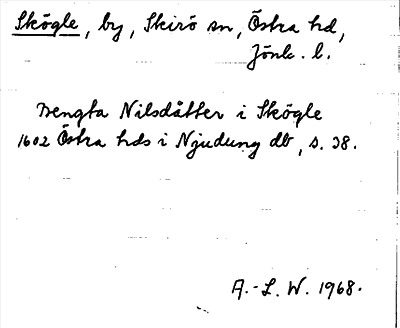 Skögle, by, Skirö sn, Östra hd,
Jönk. l.
Bengta Nilsdåtter i Skögle
1602 Östra hds i Njudung db, s. 38.
A.-L. W. 1968.